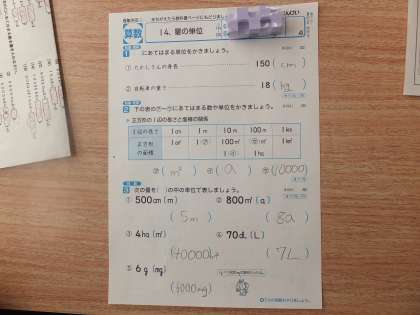 算数
14. 量の単位
1 にあてはまる単位をかきましょう。
① たかしくんの身長 150 ( cm )
② 自転車の重さ 18 ( kg )
2 下の表の㋐〜㋒にあてはまる数や単位をかきましょう。
正方形の1辺の長さと面積の関係
1辺の長さ 1cm 1m 10m 100m 1km
正方形の面積 1cm² 1(㋐) 100m² ㋒m² 1km²
1(㋑) 1ha
㋐( m² ) ㋑( a ) ㋒( 10000 )
3 次の量を( )の中の単位で表しましょう。
① 500cm (m) ② 800m² (a)
( 5m ) ( 8a )
③ 4ha (m²) ④ 70dL (L)
( 40000m² ) ( 7L )
⑤ 6g (mg)
( 6000mg )